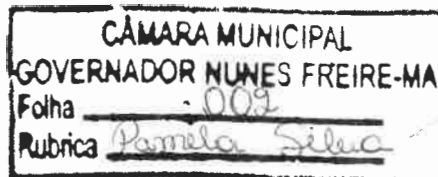 CÂMARA MUNICIPAL
GOVERNADOR NUNES FREIRE-MA
Folha 002
Rubrica Pamela Silva